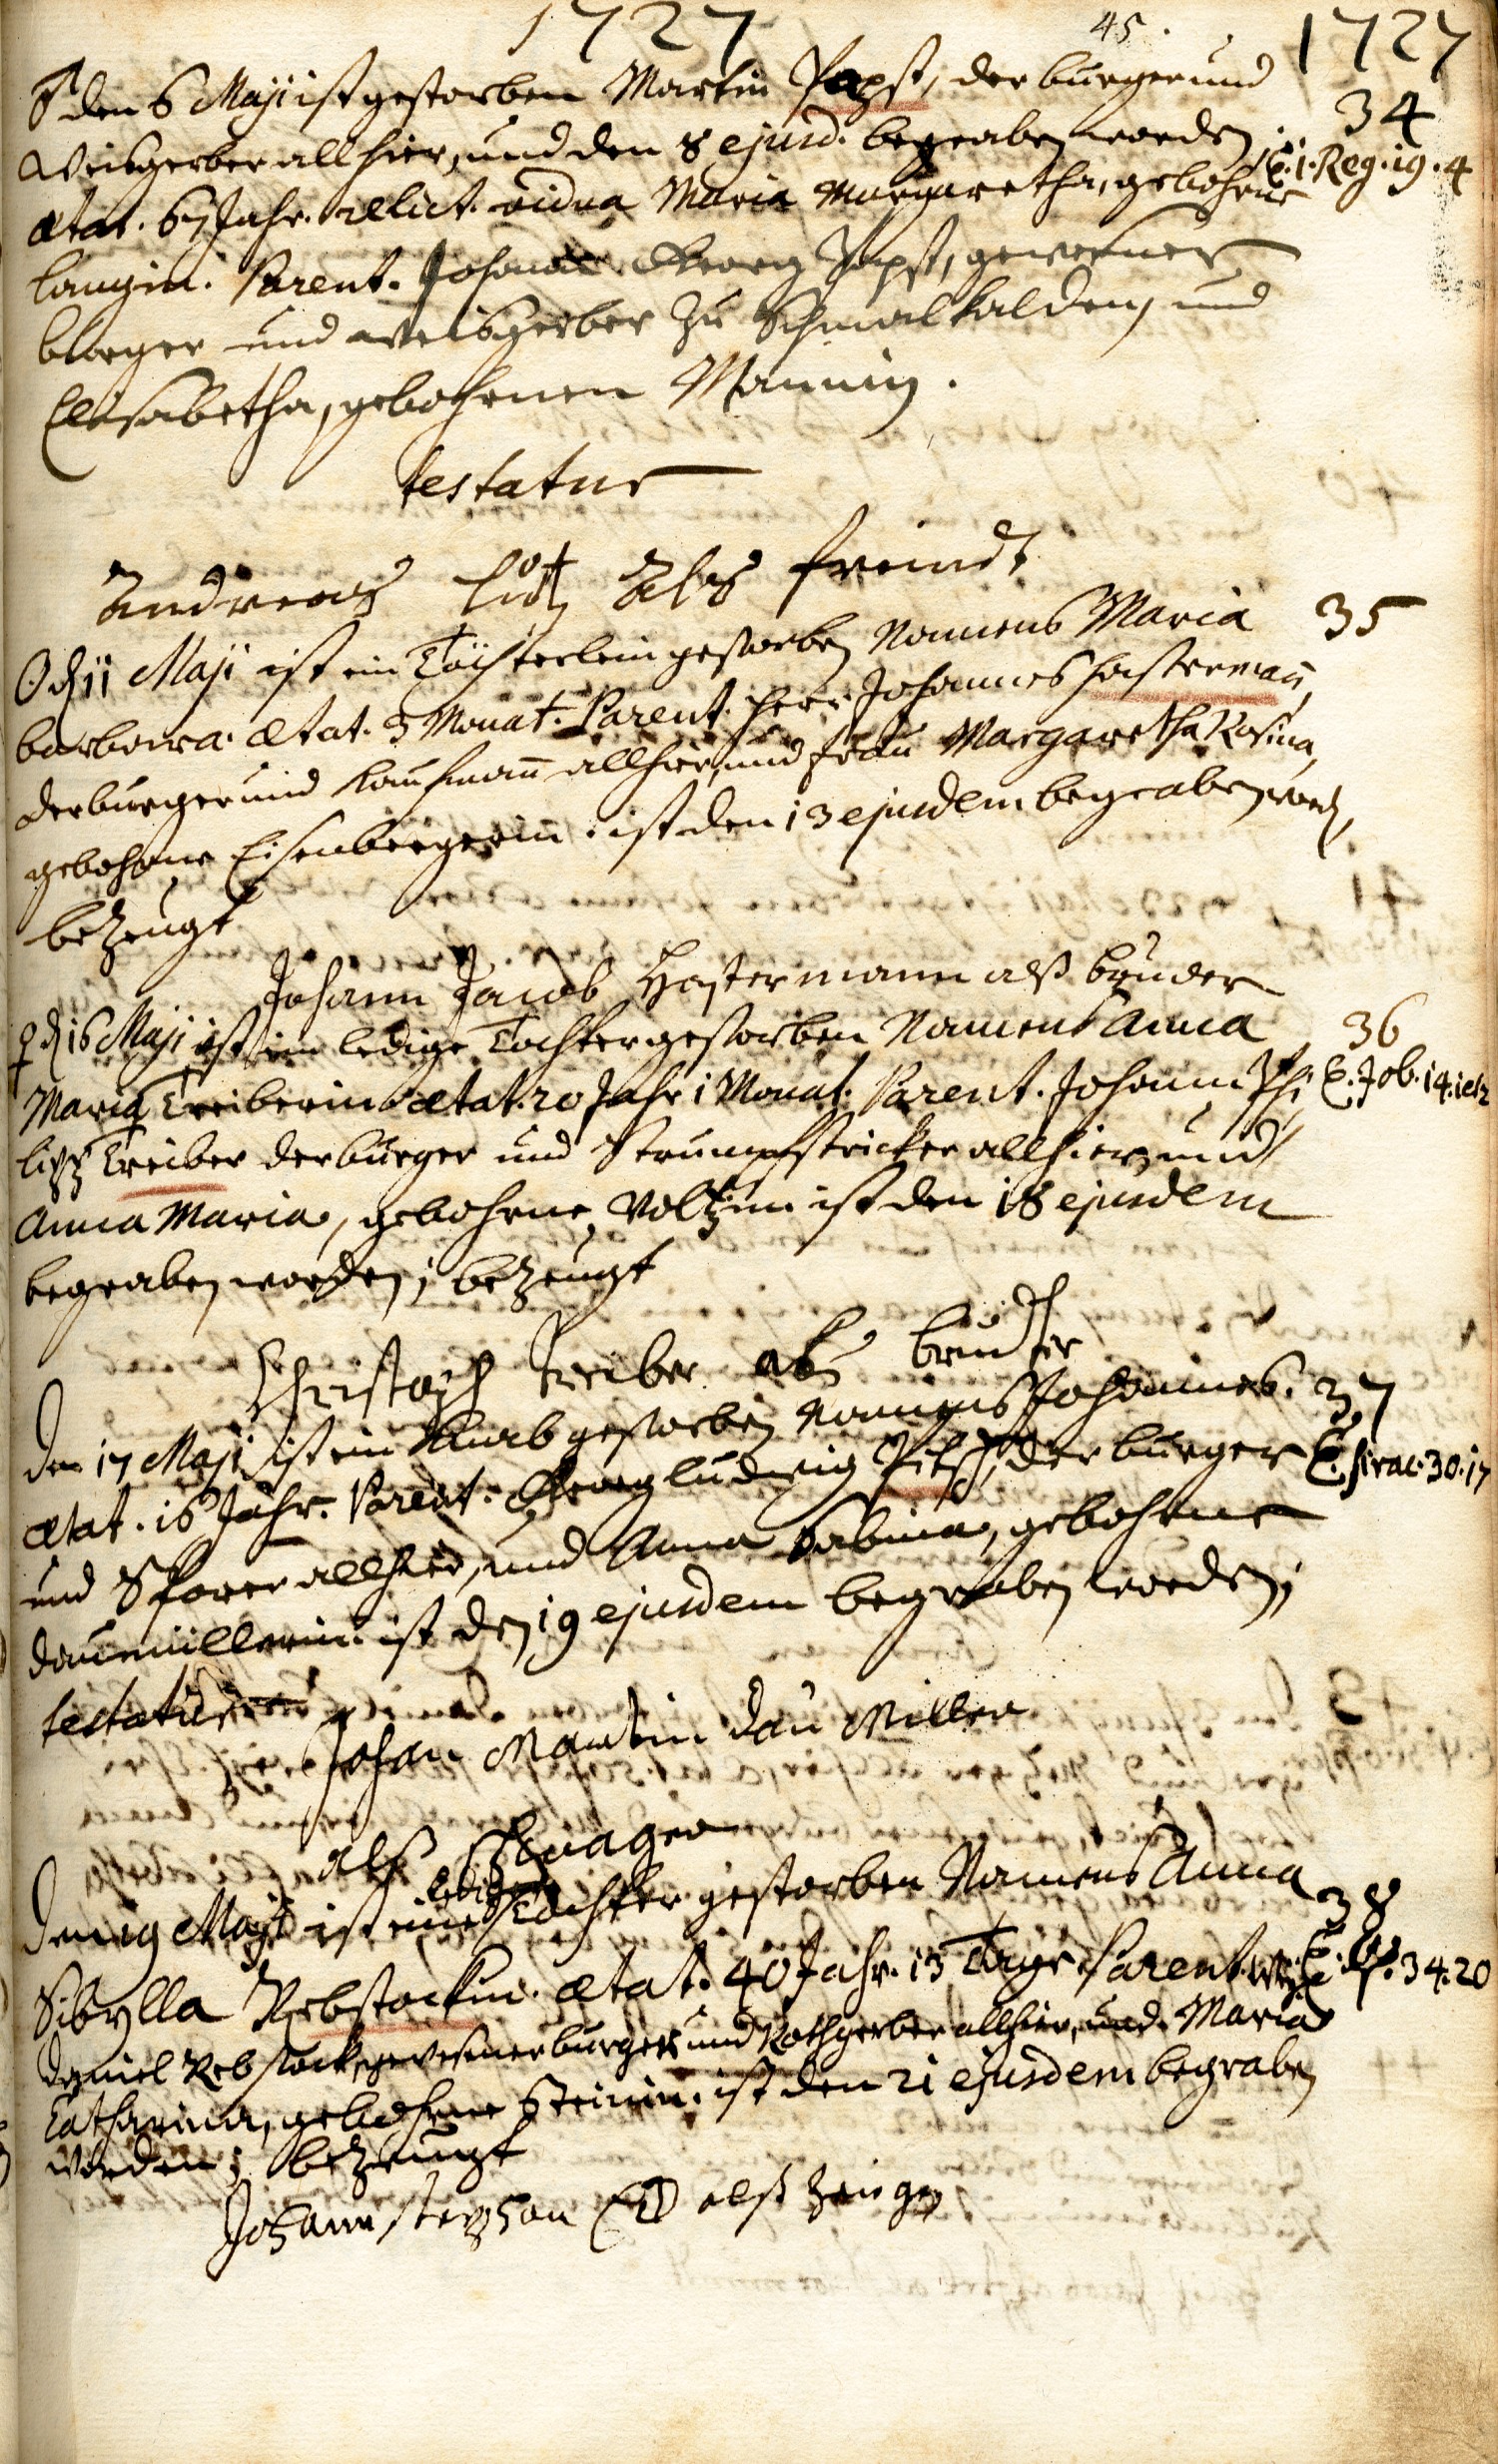 1727 45. 1727
♂ den 6 Maji ist gestorben Martin Papst, der burger und 34
Weisgerber allhier, und den 8 ejusd. begraben worden, E. 1. Reg. 19. 4
ætat. 67 Jahr. relict. vidua Maria Margaretha, gebohrne
Langin. Parent. Johann Georg Papst, gewesener
burger und weisgerber zu Schmalkalden, und
Elisabetha, gebohrnen Mannin.
testatur
Andreas Lutz Als freindt
☉ d 11 Maji ist ein Töchterlein gestorben Namens Maria 35
barbara. ætat. 3 Monat. Parent. Herr Johannes Hastermañ,
der burger und Kaufmañ allhier, und frau Margaretha Rosina,
gebohrne Eisenbergerin: ist den 13 ejusdem begraben word,
bezeugt
Johann Jacob Hastermann alß bruder
♀ d 16 Maji ist ein ledige Tochter gestorben Namens Anna 36
Maria Treiberin ætat. 20 Jahr 1 Monat. Parent. Johann Phi- E. Job. 14. 1 et 2
lipp Treiber der burger und Strumpfstricker allhier, und
Anna Maria, gebohrne Voltzin ist den 18 ejusdem
begraben worden; bezeugt
Christoph Treiber als bruder
Den 17 Maji ist ein Knab gestorben Namens Johannes. 37
ætat. 16 Jahr. Parent. Georg Ludwig der burger E. sirac. 30. 17
und Sporer allhier, und Anna Sabina, gebohrne
daumüllerin. ist den 19 ejusdem begraben worden;
testatur
Johan Martin dau Miller
als Schwager
Den 19 Maji ist eine ledige Tochter gestorben Namens Anna 38
Sibylla Rebstockin. ætat. 40 Jahr. 13 Tage Parent. E. Ps. 34. 20
Daniel Rebstock, gewesener burger und Rothgerber allhier, und Maria
Catharina, gebohrne Steinin. ist den 21 ejusdem begraben
worden; bezeugt
Johann stephan alß zeuge